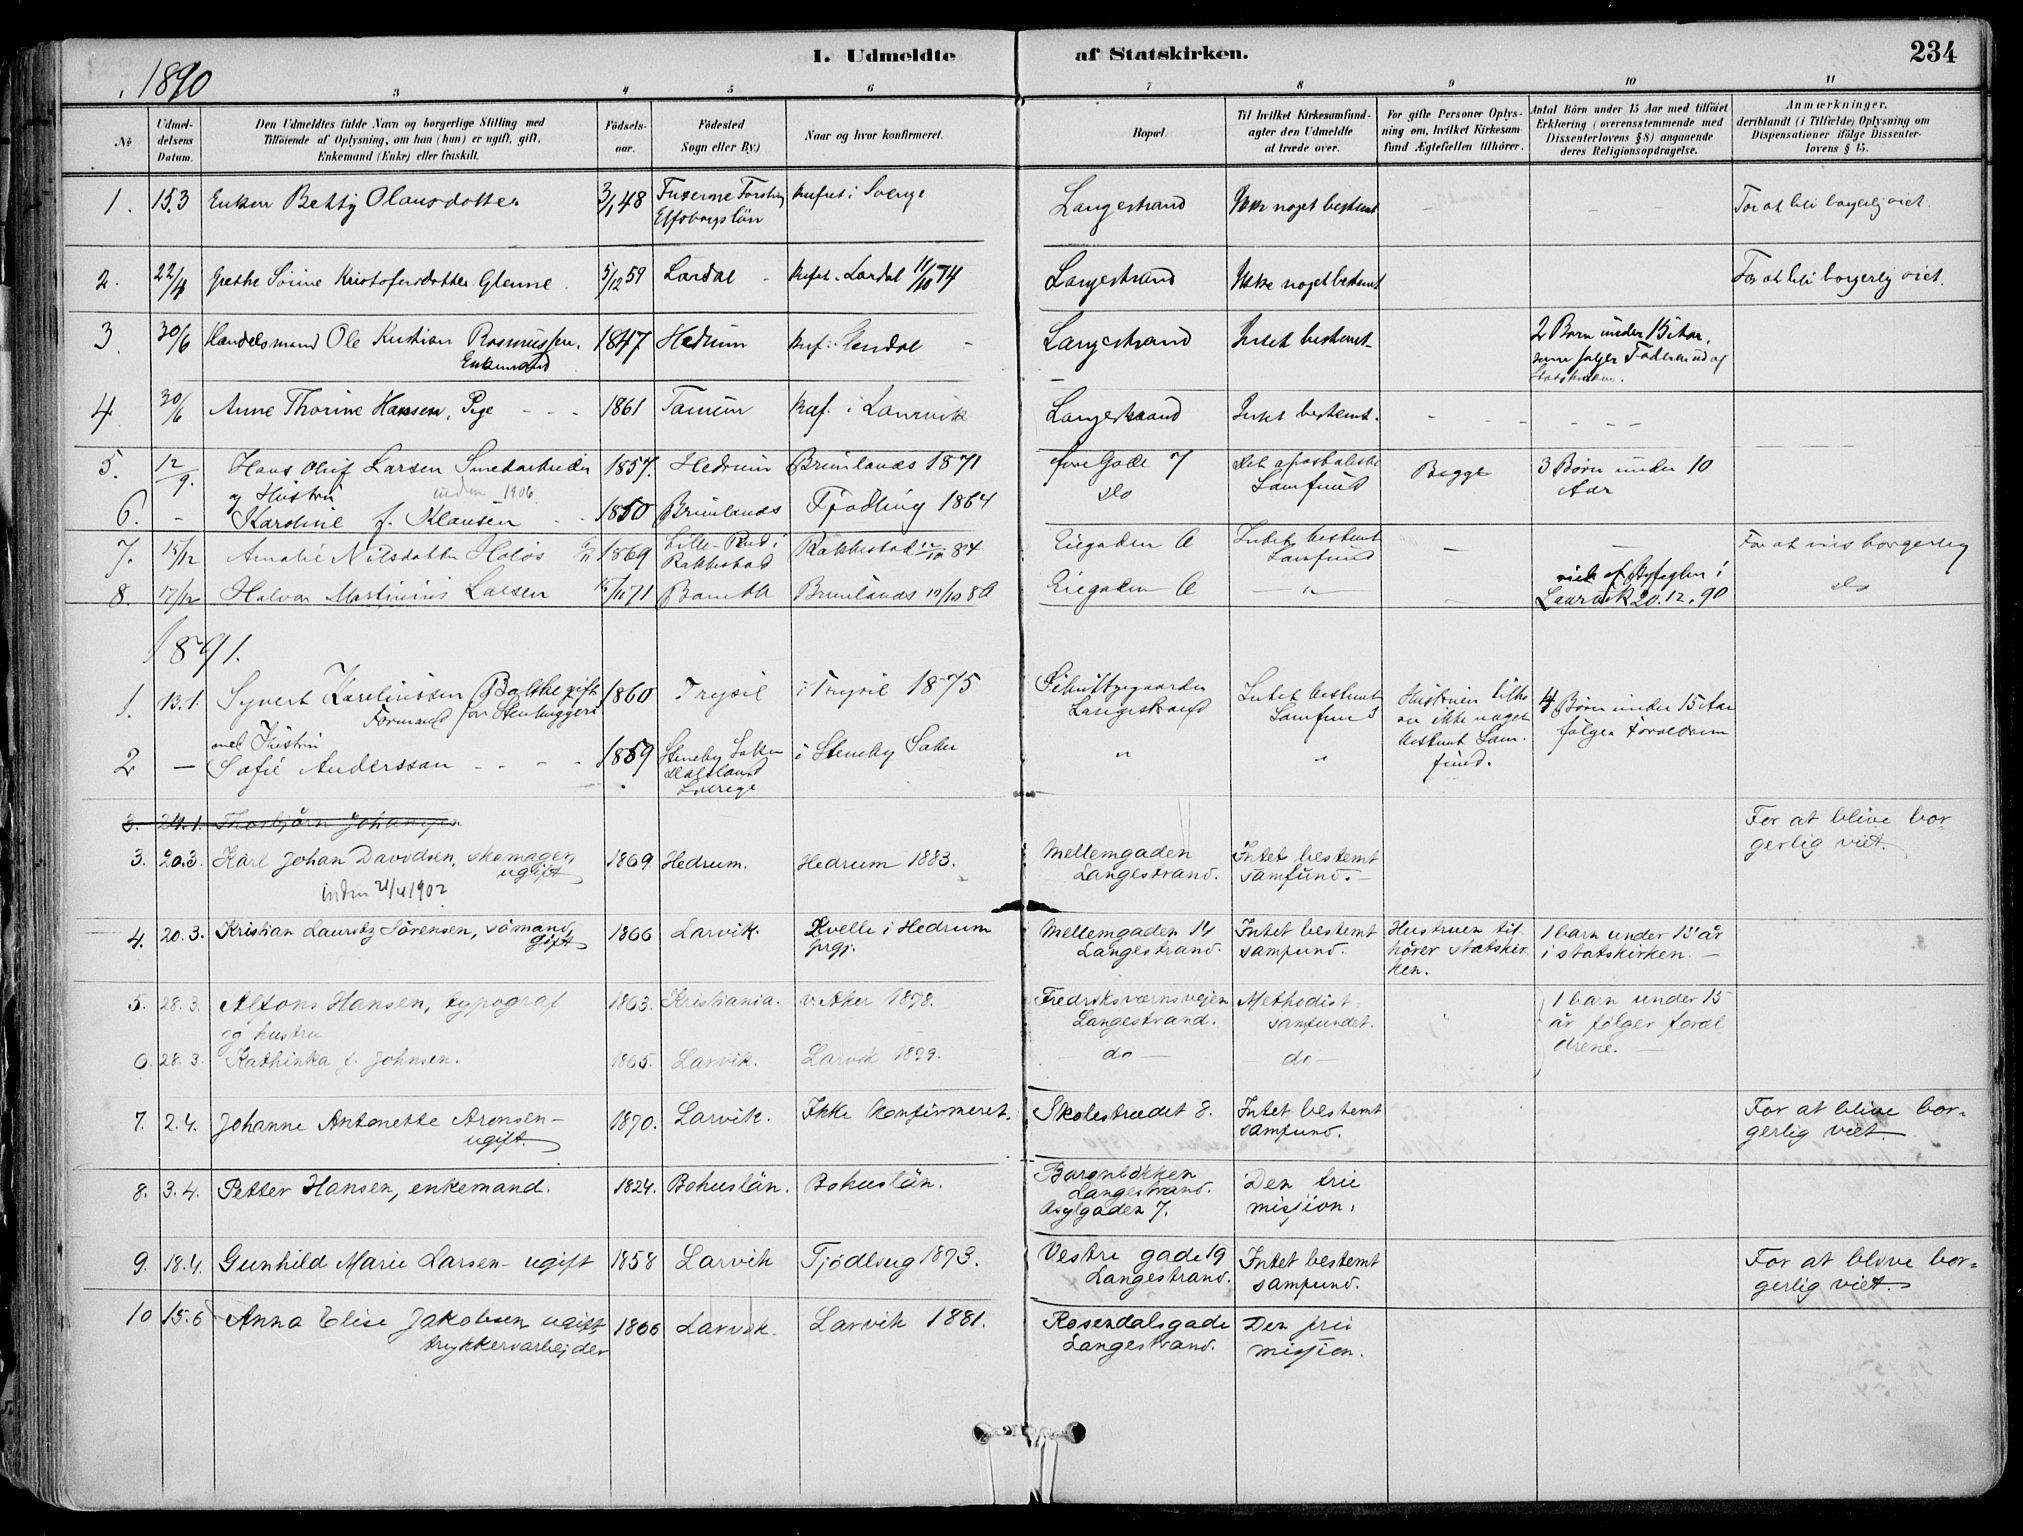 I. Udmeldte af Statskirken. 234
1890
3 4 5 6 7 8 9 10 11
No
Udmel-
delsens
Datum.
Den Udmeldtes fulde Navn og borgerlige Stilling med
Tilföiende af Oplysning, om han (hun) er ugift, gift,
Enkemand (Enke) eller fraskilt.
Födsels-
aar.
Födested
Sogn eller By)
Naar og hvor konfirmeret.
Bopæl.
Til hvilket Kirkesamfund-
agter den Udmeldte
at træde over.
For gifte Personer Oplys-
ning om, hvilket Kirkesam-
fund Ægtefællen tilhörer.
Antal Börn under 15 Aar med tilföiet
Erklæring (overensstemmende med
Dissenterlovens § 8) angaaende
deres Religionsopdragelse.
Anmærkninger,
deriblandt (i Tilfælde) Oplysning om
Dispensationer ifölge Dissenter-
lovens § 15.
1. 15.3 Enken Betty Olausdotter 3/1 48
Elfsborgslän
i Sverige Langestrand noget bestemt For at bli borgerlig viet.
2. 22/4 Grethe Sörine Kristofersdatter Glenne. 5/12 59 Lardal Lardal 11/10 74 Langestrand Ikke noget bestemt For at bli borgerlig viet.
3. 30/6 Handelsmand Ole Kristian Rasmussen,
Enkemand
1847 Hedrum Langestrand Intet bestemt 2 Børn under 15 Aar,
som følger Faderen ud af
Statskirken.
4. 30/6 Anne Thorine Hansen, Pige 1861 Tanum i Laurvik Langestrand Intet bestemt.
5. 12/9. Hans Oluf Larsen Smedarbeider 1857. Hedrum Brunlanæs 1871 Gade 7 Det apostoliske
Samfund
Begge 3 Børn under 10
Aar
og Hustru
indm 1906
6. - Karoline f. Klausen 1850 Brunlanæs Tjødling 1864 do
7. 15/12 Amalie Nilsdatter 1869 Lille-Rud i
Rakkestad
Rakkestad 84 Eiegaden 6 Intet bestemt
Samfund
- - For at vies borgerlig
8. 17/12 Halvor Martinius Larsen 71 Bamble Brunlanæs Eiegaden 6 — " viet af Byfogden i
Laurvik 20.12.90
do
1891.
1. 13.1. Syvert Karelinssen gift
Formand for Stenhuggeri
1860 Trysil i Trysil 1875 Langestrand Intet bestemt
Samfund
Hustruen tilhø
rer ikke noget
bestemt Sam-
fund.
4 Børn under 15 Aar
følger Forældrene
med Hustru
2 — Sofie Anderssan 1859 Steneby Sokn
Dalsland
Sverige
i Steneby Sokn " "
3. 24.1. Thorbjörn Johansen
3. 20.3. Karl Johan Davidsen, skomager,
ugift
indm 21/4 1902
1869 Hedrum. Hedrum 1883. Mellemgaden
Langestrand.
Intet bestemt
samfund. -
For at blive bor-
gerlig viet.
4. 20.3. Kristian Lauritz Sörensen, sömand,
gift
1866 Larvik. Kvelle i Hedrum
prgj.
Mellemgaden 14
Langestrand.
Intet bestemt
samfund.
Hustruen til
hörer statskir
ken.
1 barn under 15 år
i statskirken. -
5. 28.3. Alfons Hansen, typograf
og hustru
1863. Kristiania. v. Aker 1878. Fredriksværnsvejen
Langestrand.
Methodist-
samfundet.
1 barn under 15
år fölger foræl
drene. -
6. 28.3. Kathinka f. Johnsen. 1865. Larvik. Larvik 1879. - do - - do -
7. 2.4. Johanne Antonette Aronsen-
ugift.
1870. Larvik. Ikke konfirmeret. Skolestrædet 8. Intet bestemt
samfund.
For at blive bor-
gerlig viet.
8. 3.4. Petter Hansen, enkemand. 1824. Bohuslän. Bohuslän. Baronlökken
Langestrand.
Asylgaden 7.
Den frie
misjion.
9. 18.4. Gunhild Marie Larsen- ugift 1858 Larvik Tjödling 1873. Vestre gade 19
Langestrand.
Intet bestemt
samfund.
For at blive bor-
gerlig viet.
10 15.6 Anna Elise Jakobsen ugift
trykkeriarbejder
1866 Larvik. Larvik 1881. Rosendalsgade
Langestrand.
Den frie
misjion.